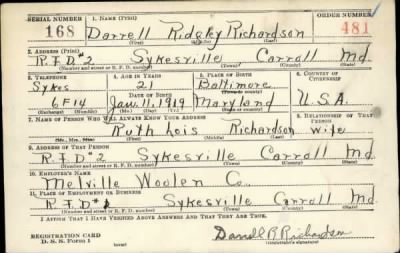 SERIAL NUMBER 1. NAME (Print) ORDER NUMBER
168 Darrell Ridgky Richardson 481
(First) (Middle) (Last)
2. ADDRESS (Print)
R.F.D #2 Sykesville Carroll Md.
(Number and street or R. F. D. number) (Town) (County) (State)
3. TELEPHONE 4. AGE IN YEARS 5. PLACE OF BIRTH 6. COUNTRY OF CITIZENSHIP
Sykes 21 Baltimore
(Town) (County)
DATE OF BIRTH
6F14 Jan. 11, 1919 Maryland U.S.A.
(Exchange) (Number) (Mo.) (Day) (Yr.) (State or country)
7. NAME OF PERSON WHO WILL ALWAYS KNOW YOUR ADDRESS 8. RELATIONSHIP OF THAT PERSON
Ruth Lois Richardson wife
(Mr., Mrs., Miss) (First) (Middle) (Last)
9. ADDRESS OF THAT PERSON
R.F.D #2 Sykesville Carroll Md
(Number and street or R. F. D. number) (Town) (County) (State)
10. EMPLOYER'S NAME
Melville Woolen Co.
11. PLACE OF EMPLOYMENT OR BUSINESS
R.F.D #1 Sykesville Carroll Md
(Number and street or R. F. D. number) (Town) (County) (State)
I AFFIRM THAT I HAVE VERIFIED ABOVE ANSWERS AND THAT THEY ARE TRUE.
REGISTRATION CARD
D. S. S. Form 1 (over) Darrell R Richardson
(Registrant's signature)